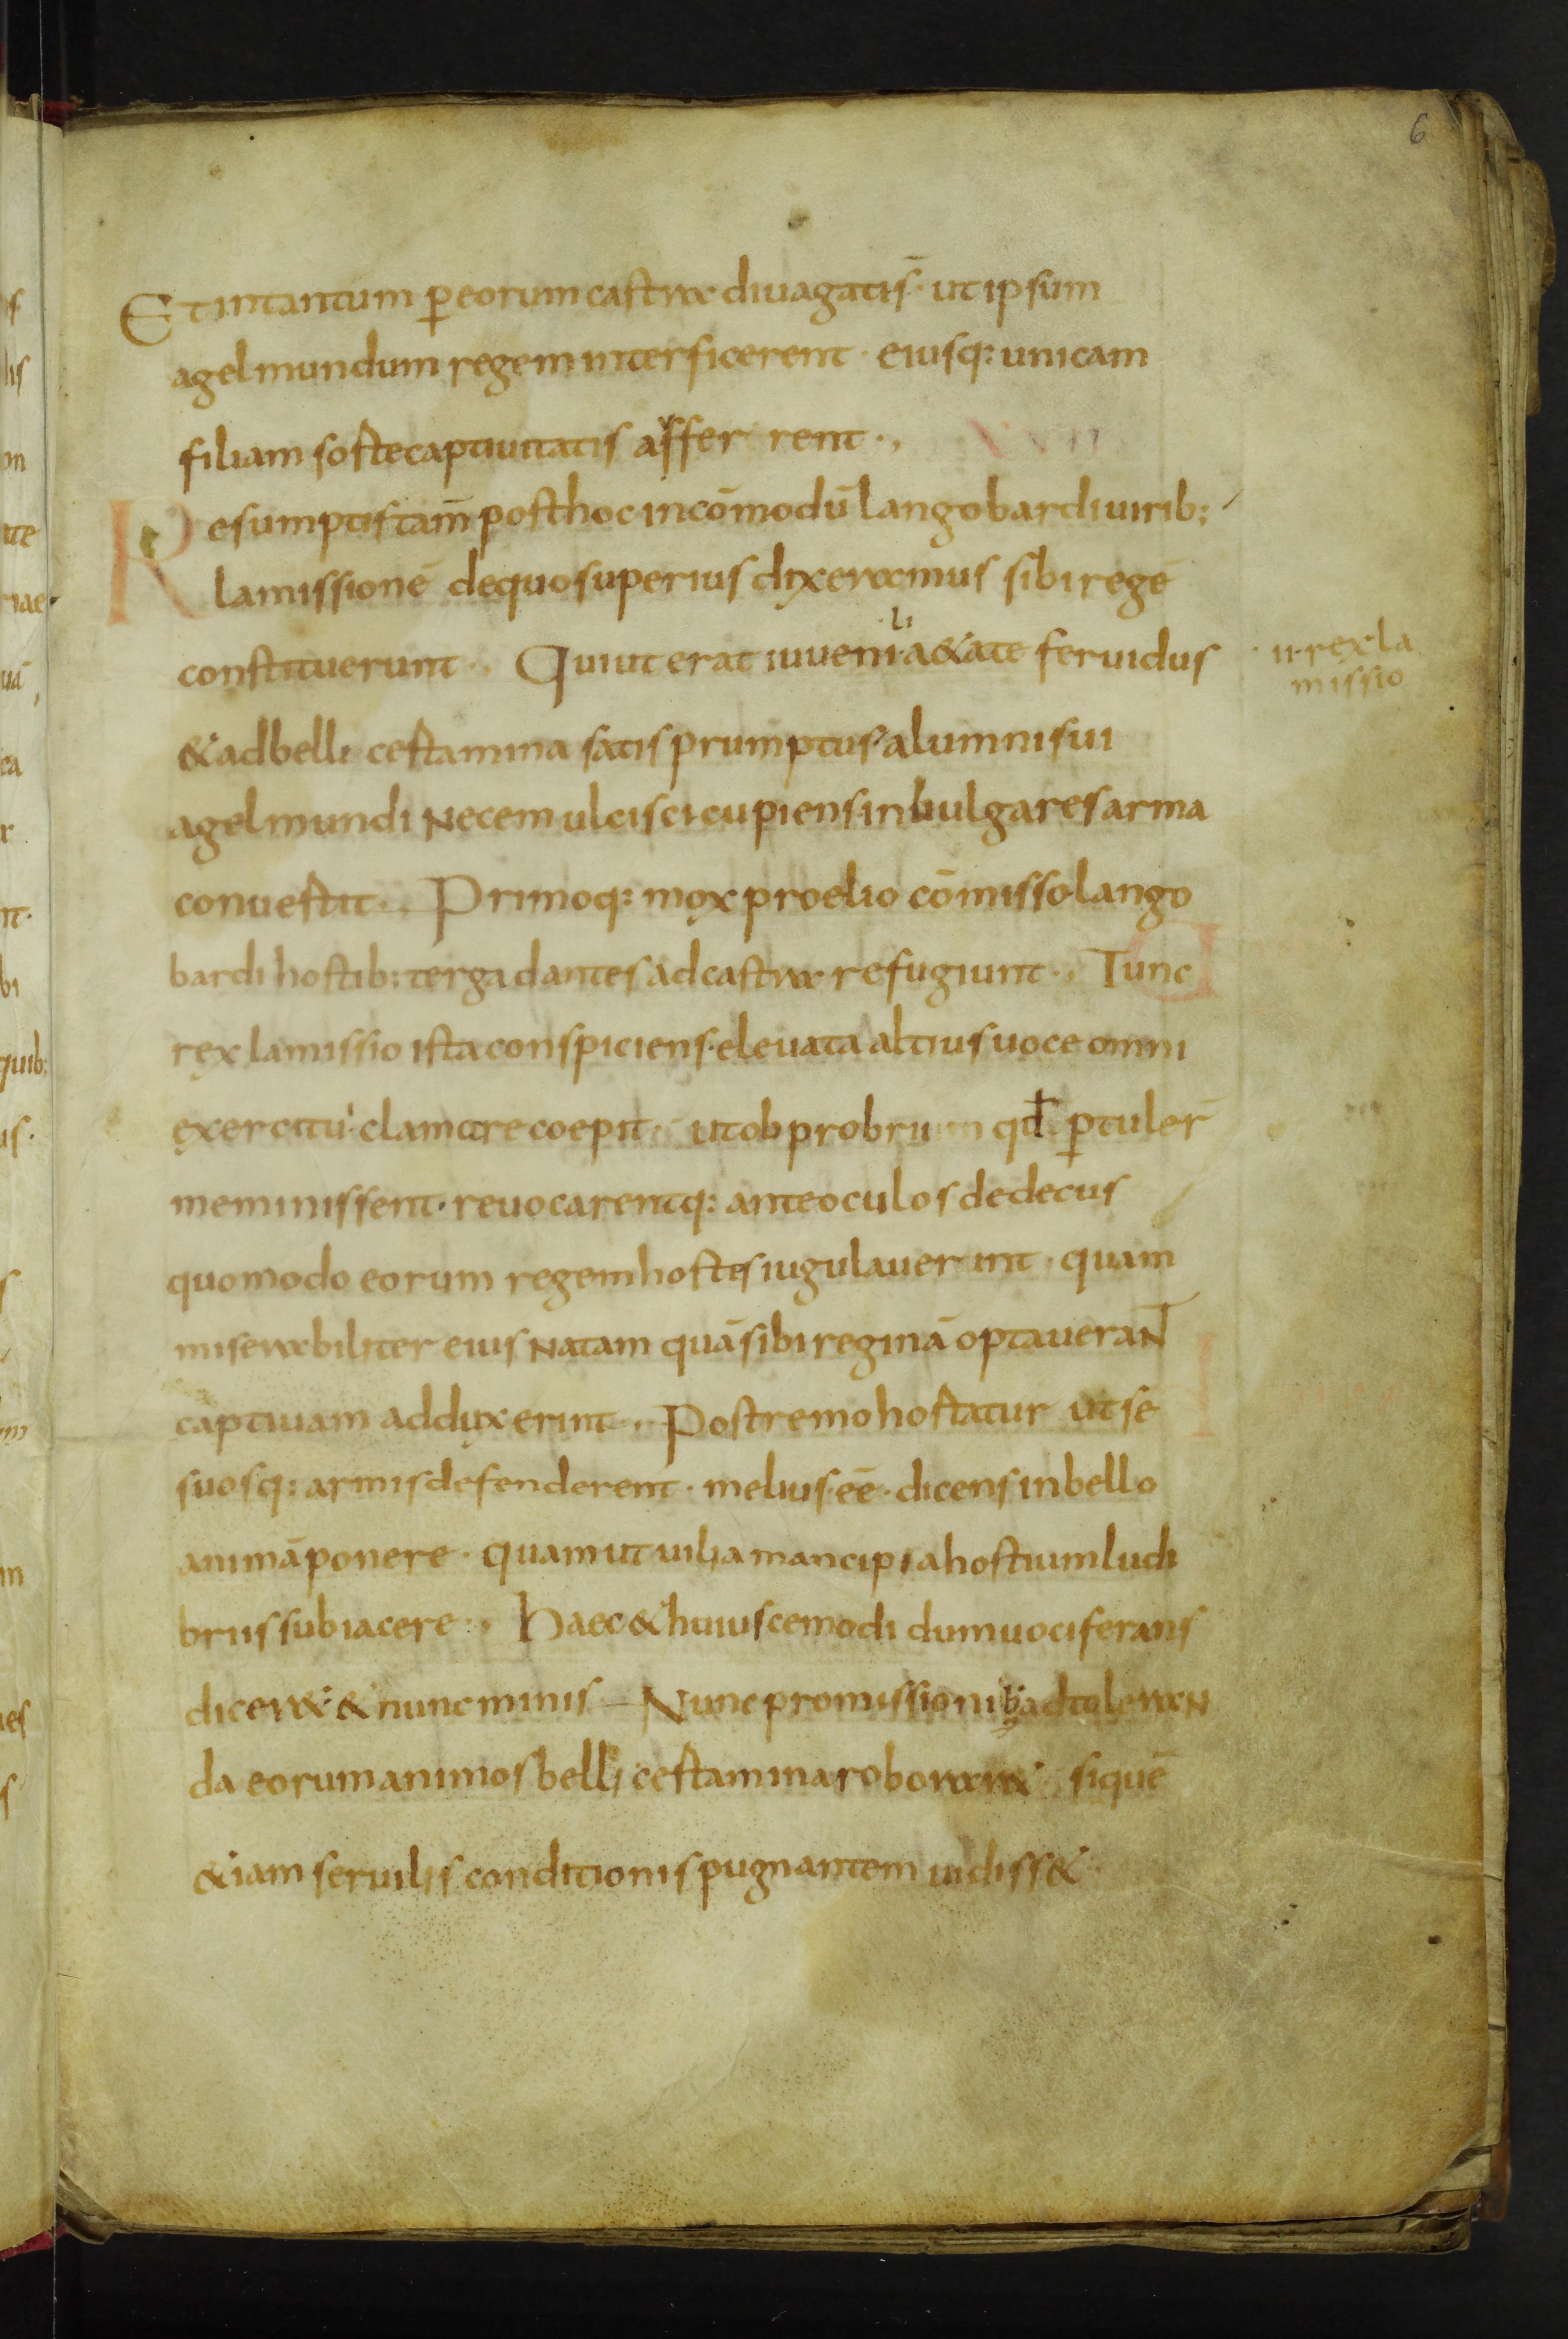 6
Et intantum p̱ eorum castra diuagatis̄· ut ipsum
agelmundum regem interficerent· eiusq: unicam
filiam softe captiuitatis asffer rent·,
XVII
Resumptis tam̄ post hoc incōmodū langobardi uirib;
lamissionē de quo superius dixeramus sibi regē
constituerunt·, Qui ut erat iuueni li a &ate feruidus
ii· rex la
missio
& ad belli cestamina satis prumptus· alumni sui
agelmundi Necem ulcisci cupiens· in bulgares arma
conuestit·, Primoq: mox proelio cōmisso lango
bardi hostib; terga dantes ad castra refugiunt·, Tunc
rex lamissio ista conspiciens· eleuata altius uoce omni
exercitui clamare coepit· ut obprobrium qđ p̱tuler̄
meminissent· reuocarentq: ante oculos dedecus
quomodo eorum regem hostes iugulauerint· quam
miserabiliter eius Natam quā sibi reginā optaueraNT
captiuam adduxerint·, Postremo hostatur ut se
suosq: armis defenderent· melius· eē· dicens in bello
animā ponere· quam ut uilia mancipia hostium ludi
briis subiacere·, Haec & huiuscemodi dum uociferans
dicer&· & nunc minis Nunc promissionib; ad toleraN
da eorum animos belli cestamina roborar& siquē
&iam seruilis conditionis pugnantem uidiss&·